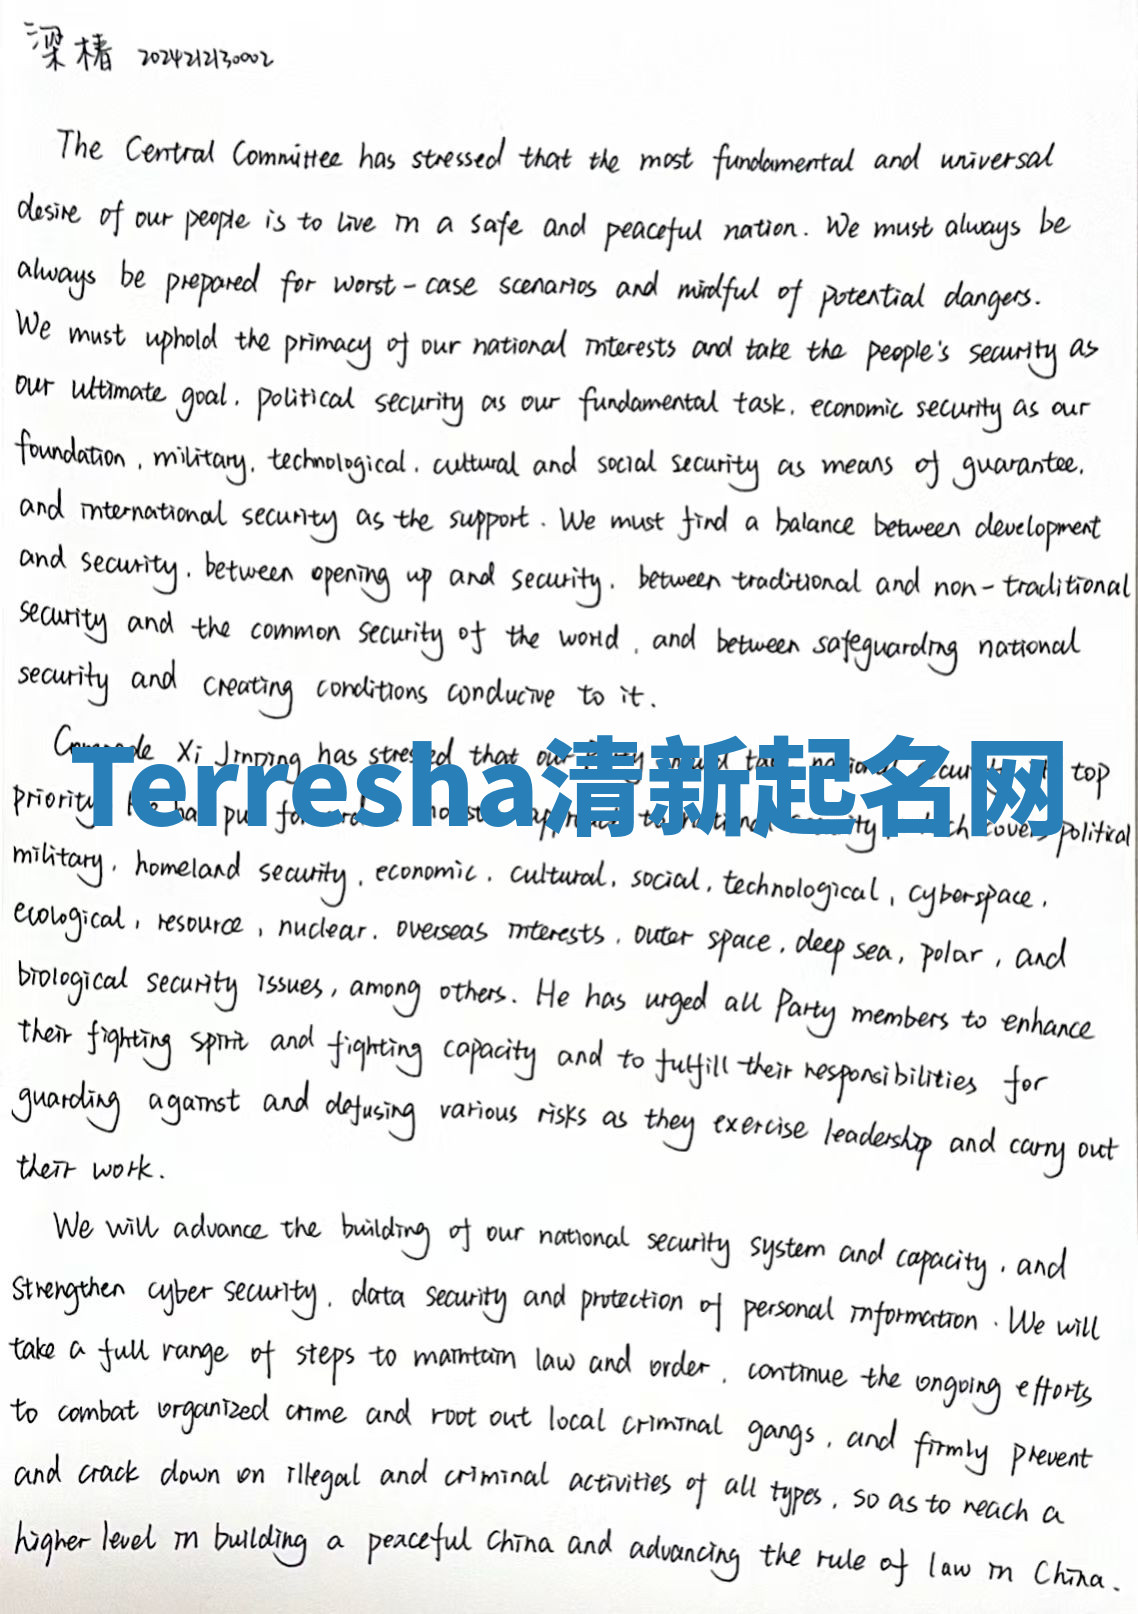 梁椿 2024212130002
The Central Committee has stressed that the most fundamental and universal
desire of our people is to live in a safe and peaceful nation. We must always be
always be prepared for worst-case scenarios and mindful of potential dangers.
We must uphold the primacy of our national interests and take the people's security as
our ultimate goal, political security as our fundamental task, economic security as our
foundation, military, technological, cultural and social security as means of guarantee,
and international security as the support. We must find a balance between development
and security, between opening up and security, between traditional and non-traditional
security and the common security of the world, and between safeguarding national
security and creating conditions conducive to it.
Xi Jinping has stressed that our top
Terresha清新起名网
priority political
military, homeland security, economic, cultural, social, technological, cyberspace,
ecological, resource, nuclear, overseas interests, outer space, deep sea, polar, and
biological security issues, among others. He has urged all Party members to enhance
their fighting spirit and fighting capacity and to fulfill their responsibilities for
guarding against and defusing various risks as they exercise leadership and carry out
their work.
We will advance the building of our national security system and capacity, and
strengthen cyber security, data security and protection of personal information. We will
take a full range of steps to maintain law and order, continue the ongoing efforts
to combat organized crime and root out local criminal gangs, and firmly prevent
and crack down on illegal and criminal activities of all types, so as to reach a
higher level in building a peaceful China and advancing the rule of law in China.